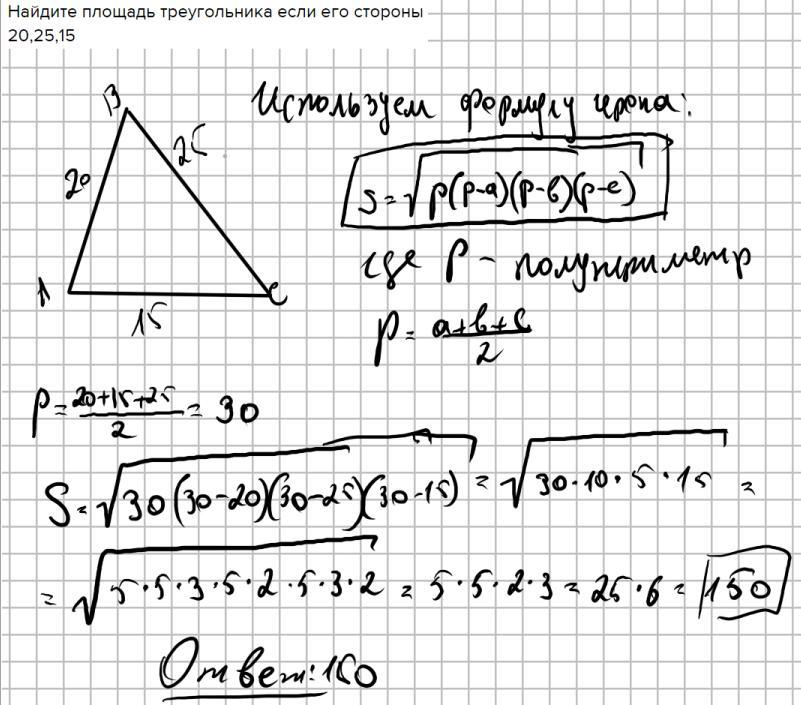 Найдите площадь треугольника если его стороны
20,25,15
B
20
25
A
C
15
Используем формулу герона:
S=√p(p-a)(p-b)(p-c)
где p - полупериметр
p=a+b+c/2
p=20+15+25/2=30
S=√30(30-20)(30-25)(30-15)=√30·10·5·15=
=√5·5·3·5·2·5·3·2=5·5·2·3=25·6=150
Ответ:150